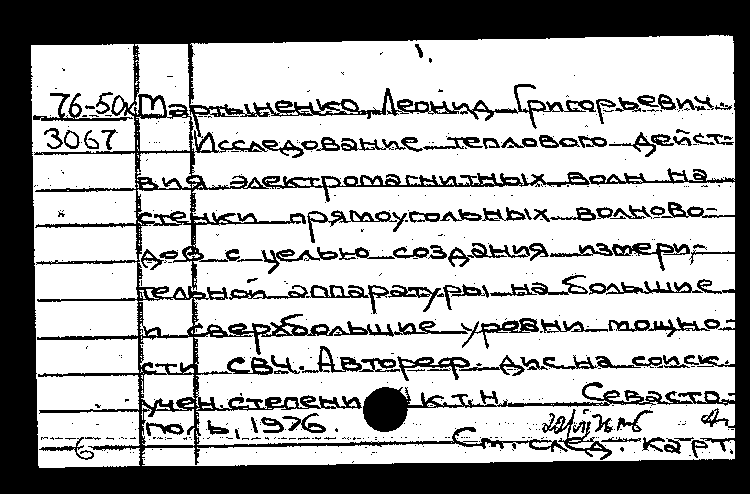 76-50к Мартыненко, Леонид Григорьевич.
3067 Исследование теплового дейст-
вия электромагнитных волн на
стенки прямоугольных волново-
дов с целью создания измери-
тельной аппаратуры на большие
и сверхбольшие уровни мощно-
сти СВЧ. Автореф. дис на соиск.
учен. степени к.т.н. Севасто-
поль, 1976.
6 См. след. карт.